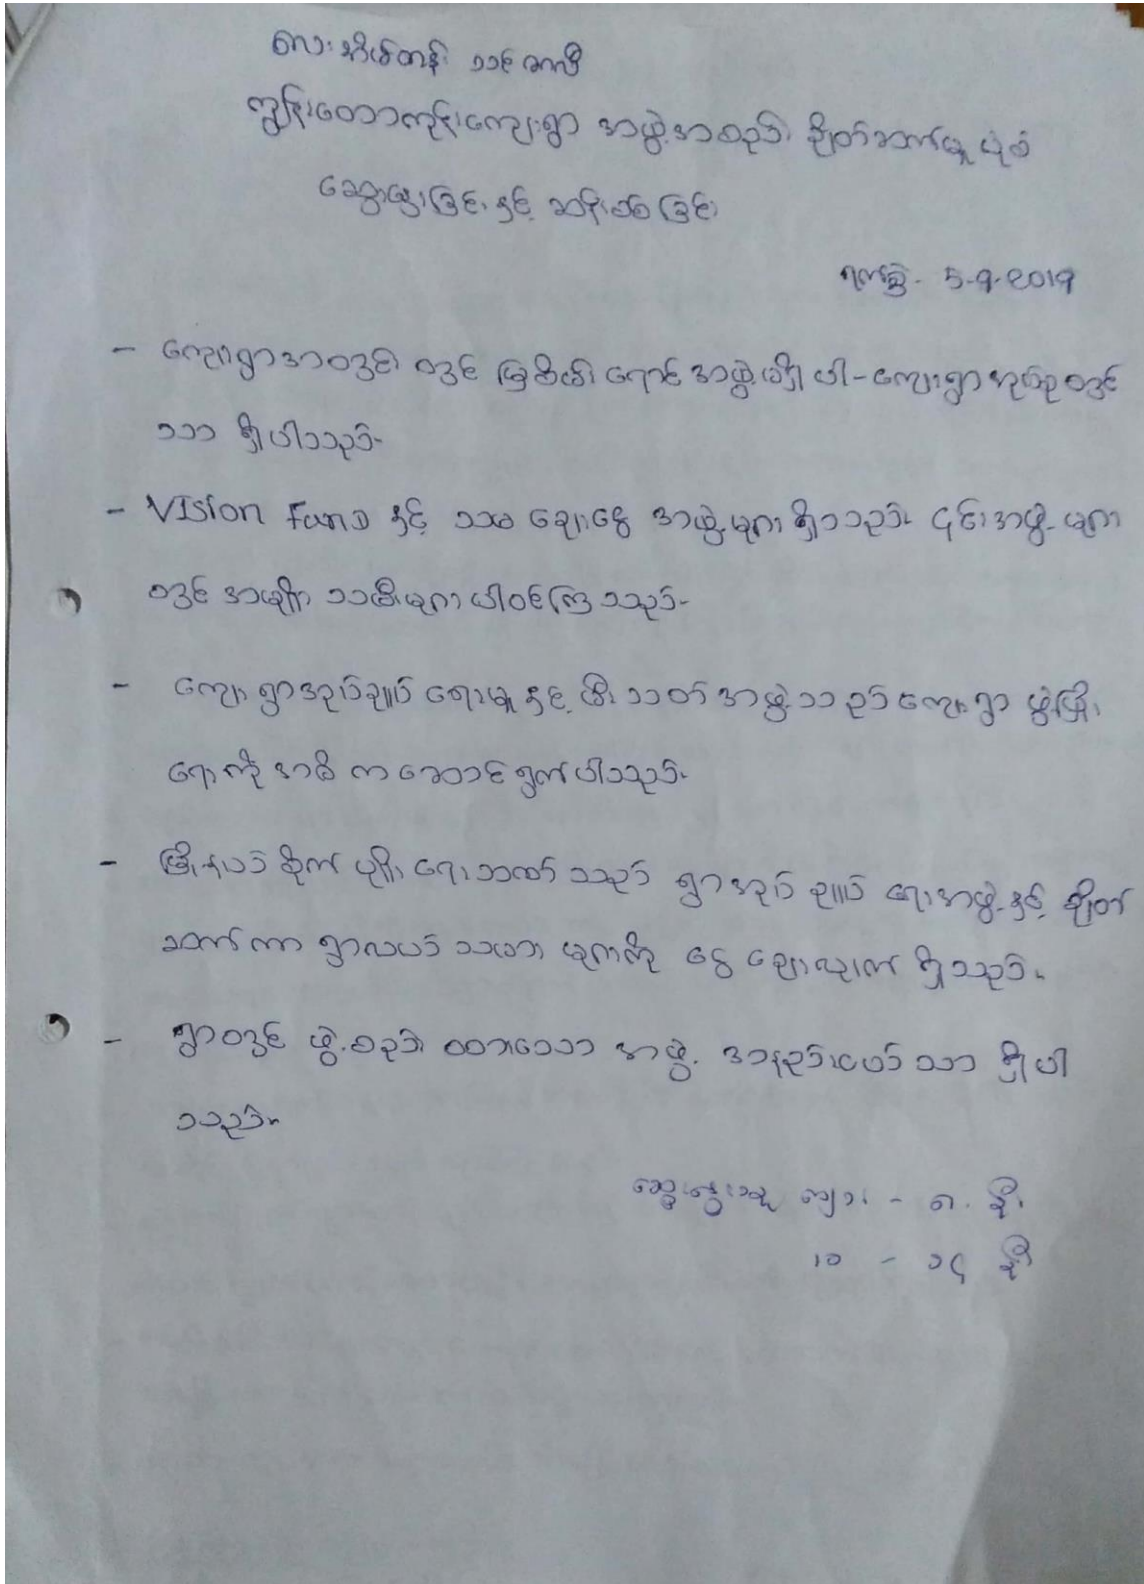 လေးအိမ်တန်
ကျွန်းတောကုန်းကျေးရွာ အဖွဲ့အစည်း ချိတ်ဆက်မှု ပုံစံ
ဆွေးနွေးခြင်း နှင့် ဆန်းစစ်ခြင်း
ရက်စွဲ - 5-9-2019
- ကျေးရွာအတွင်း တွင် မြစိမ်းရောင် အဖွဲ့မရှိပါ - ကျေးရွာအုပ်စုတွင်
သာ ရှိပါသည်။
- VISion Fund နှင့် သမ ချေးငွေ အဖွဲ့များ ရှိသည်။ ၎င်းအဖွဲ့များ
တွင် အမျိုးသမီးများ ပါဝင်ကြသည်။
- ကျေးရွာအုပ်ချုပ်ရေးမှူးနှင့် မီးသတ်အဖွဲ့သည် ကျေးရွာ ဖွံ့ဖြိုး
ရေးကို အဓိက ဆောင်ရွက်ပါသည်။
- မြို့နယ် စိုက်ပျိုးရေးဘဏ် သည် ရွာအုပ်ချုပ်ရေးအဖွဲ့နှင့် ချိတ်
ဆက်ကာ ရွာလယ်သမား များကို ငွေချေးလျှက်ရှိသည်။
- ရွာတွင် ဖွဲ့စည်းထားသော အဖွဲ့ အနည်းငယ်သာ ရှိပါ
သည်။
ဆွေးနွေးသူ ကျား - ၈ ဦး
မ - ၁၄ ဦး